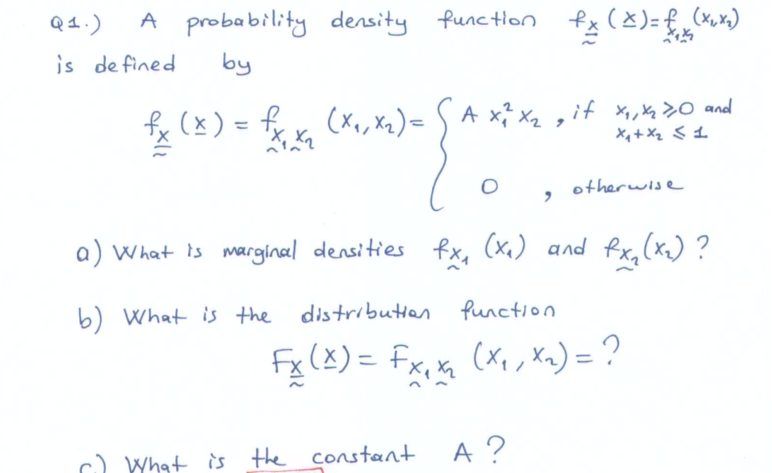 Q1.) A probability density function f_X (x) = f_X₁X₂ (x₁,x₂)
is defined by
f_X (x) = f_X₁X₂ (x₁, x₂) = { A x₁² x₂ , if x₁, x₂ ⩾ 0 and
x₁ + x₂ ≤ 1
0 , otherwise
a) What is marginal densities f_X₁ (x₁) and f_X₂ (x₂) ?
b) What is the distribution function
F_X (x) = F_X₁X₂ (x₁, x₂) = ?
c) What is the constant A ?